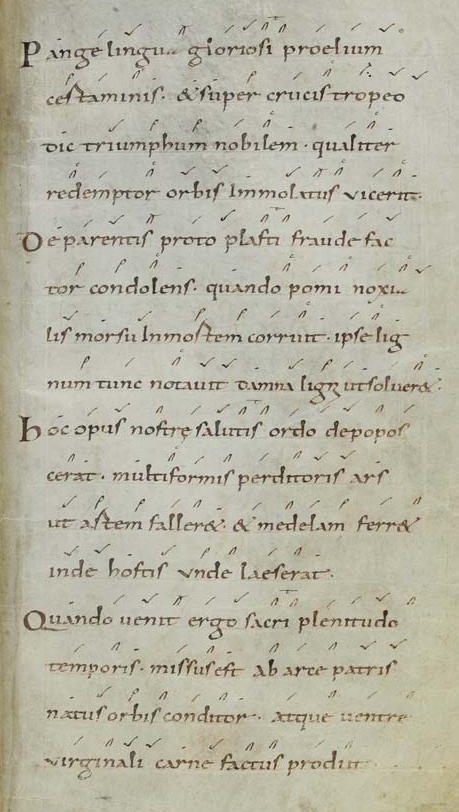 Pange lingua gloriosi proelium
certaminis. & super crucis tropeo
dic triumphum nobilem. qualiter
redemptor orbis Immolatus vicerit.
De parentis proto plasti fraude fac
tor condolens. quando pomi noxia
lis morsu In mortem corruit. ipse lig
num tunc notavit damna ligni ut solver&.
Hoc opus nostrę salutis ordo depopos
cerat. multiformis perditoris ars
ut artem faller&. & medelam ferr&
inde hostis unde laeserat.
Quando venit ergo sacri plenitudo
temporis. missus est ab arce patris
natus orbis conditor. atque ventre
virginali carne factus prodiit.